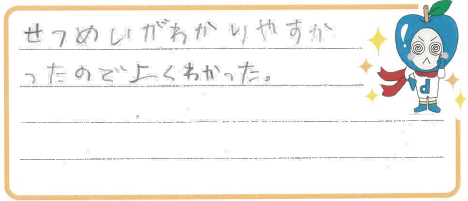 せつめいがわかりやすか
ったので上くわかった。
d